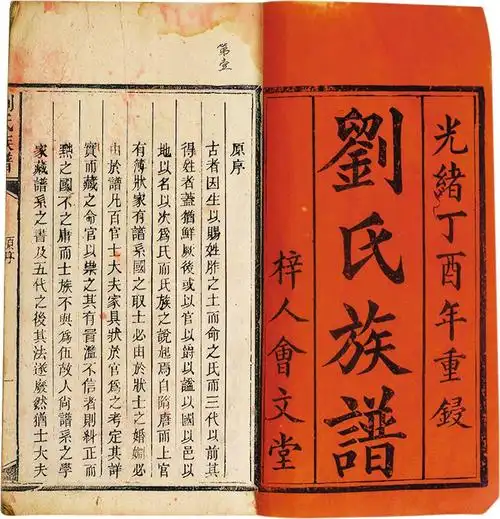 光緒丁酉年重鋟
劉氏族譜
梓人會文堂
第壹
原序
古者因生以賜姓胙之土而命之氏而三代以前其
得姓者蓋猶鮮厥後或以官以爵以謚以國以邑以
地以名以次爲氏而氏族之說起焉自隋唐而上官
有簿狀家有譜系國之取士必由於狀士之婚姻必
由於譜凡百官士大夫家具狀於官爲之考定其詳
實而藏之命官以掌之其有冒濫不信者則糾正而
黜之國不之庸而士族不與爲伍故人尙譜系之學
家藏譜系之書及五代之後其法遂廢然猶士大夫
劉氏族譜
原序